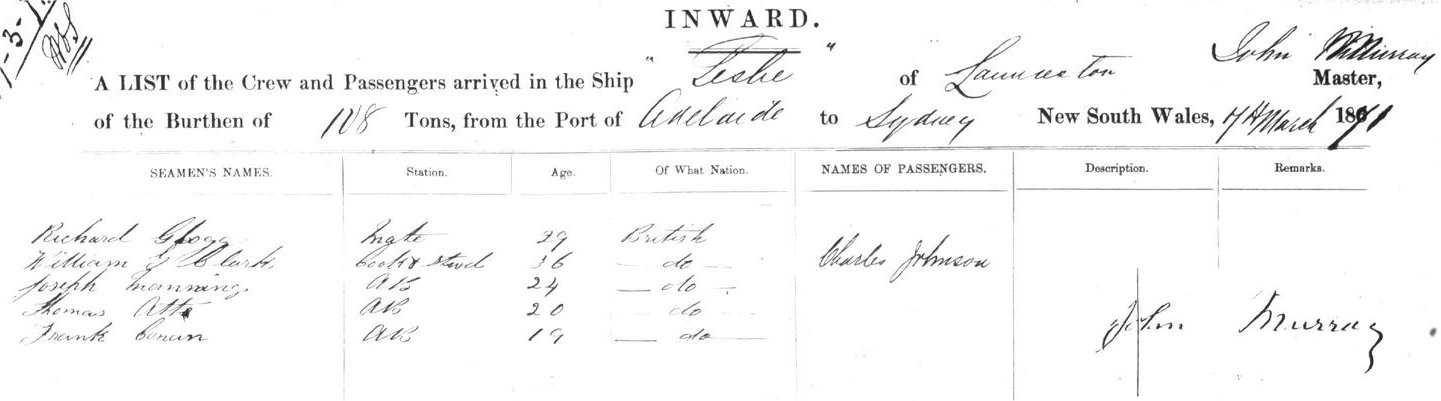 INWARD.
A LIST of the Crew and Passengers arrived in the Ship " Leslie " of Launceston John Murray Master,
of the Burthen of 108 Tons, from the Port of Adelaide to Sydney New South Wales, March 1871
SEAMEN'S NAMES. Station. Age. Of What Nation. NAMES OF PASSENGERS. Description. Remarks.
Richard Mate 29 British
William Clark Cook & Stwd 36 — do — Charles Johnson
Joseph Manning AB 24 — do —
Thomas AB 20 — do —
Frank AB 19 — do —
John Murray